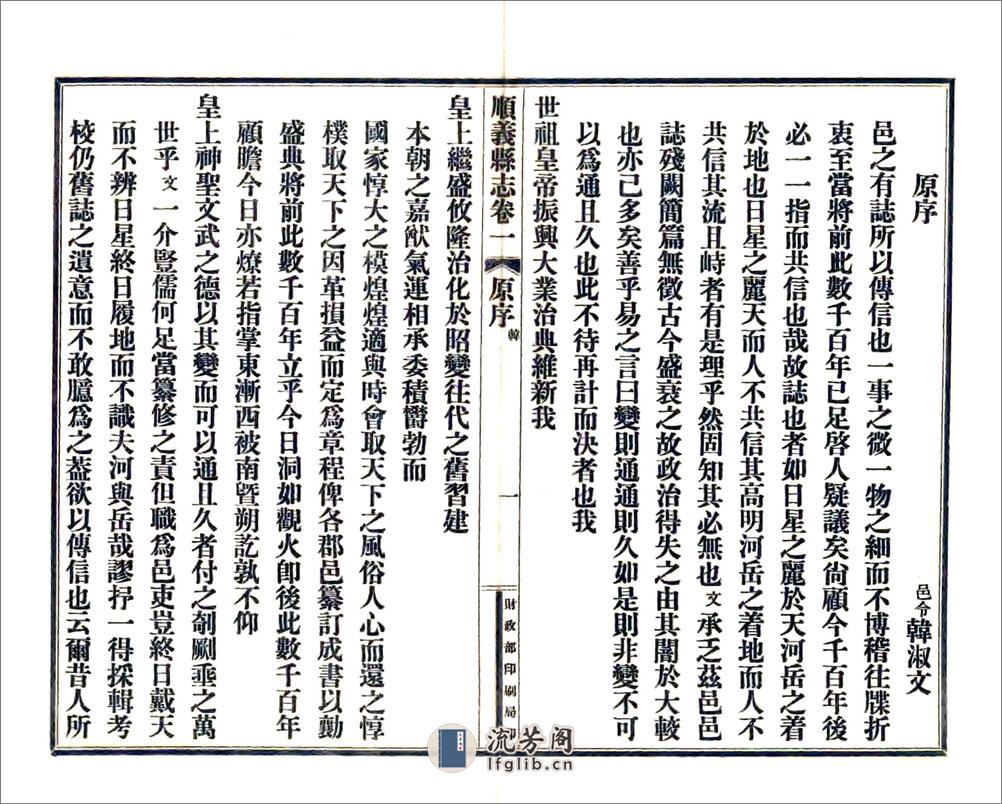 原序
邑令韓淑文
邑之有誌所以傳信也一事之微一物之細而不博稽往牒折
衷至當將前此數千百年已足啓人疑議矣尙顧今千百年後
必一一指而共信也哉故誌也者如日星之麗於天河岳之着
於地也日星之麗天而人不共信其高明河岳之着地而人不
共信其流且峙者有是理乎然固知其必無也文承乏茲邑邑
誌殘闕簡篇無徵古今盛衰之故政治得失之由其闇於大較
也亦已多矣善乎易之言曰變則通通則久如是則非變不可
以爲通且久也此不待再計而決者也我
世祖皇帝振興大業治典維新我
順義縣志卷一
原序
韓
一
財政部印刷局印
皇上繼盛攸隆治化於昭變往代之舊習建
本朝之嘉猷氣運相承委積欝勃而
國家惇大之模煌煌適與時會取天下之風俗人心而還之惇
樸取天下之因革損益而定爲章程俾各郡邑纂訂成書以勷
盛典將前此數千百年立乎今日洞如觀火卽後此數千百年
顧瞻今日亦燎若指掌東漸西被南曁朔訖孰不仰
皇上神聖文武之德以其變而可以通且久者付之剞劂垂之萬
世乎文一介豎儒何足當纂修之責但職爲邑吏豈終日戴天
而不辨日星終日履地而不識夫河與岳哉謬抒一得採輯考
校仍舊誌之遺意而不敢臆爲之葢欲以傳信也云爾昔人所
流芳阁
lfglib.cn